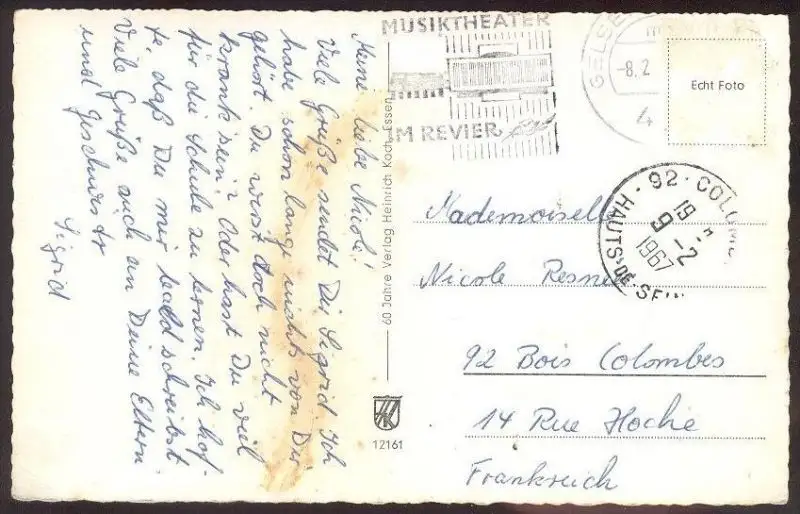 Meine liebe Nicole!
Viele Grüße sendet Dir Sigrid. Ich
habe schon lange nichts von Dir
gehört. Du wirst doch nicht
krank sein? Oder hast Du viel
für die Schule zu lernen. Ich hof-
fe, daß Du mir bald schreibst
Viele Grüße auch an Deine Eltern
und Geschwister
Sigrid
60 Jahre Verlag Heinrich Koch, Essen
12161
MUSIKTHEATER
IM REVIER
GELSE
-8.2
4
Echt Foto
92 - COLO
19 H
9-2
1967
HAUTS-DE-SEIN
Mademoiselle
Nicole
92 Bois Colombes
14 Rue Hoche
Frankreich